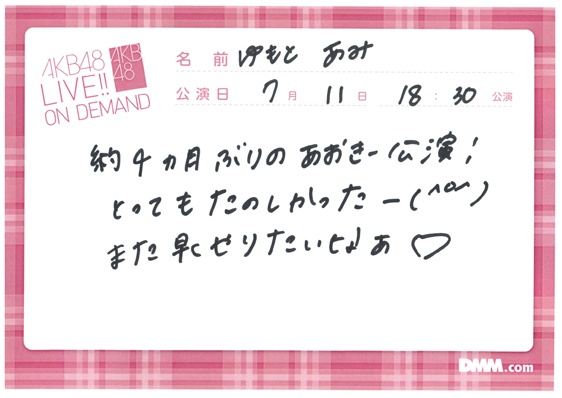 AKB48
LIVE!!
ON DEMAND
AKB
48
名前 ゆもと あみ
公演日 7月 11日 18:30 公演
約4ヵ月ぶりのあおきー公演!
とってもたのしかったー(^o^)
また早くやりたいなぁ♡
DMM.com